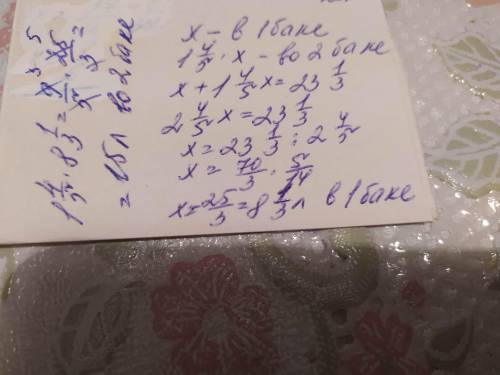 x - в 1 баке
1 4/5 · x - во 2 баке
x + 1 4/5 x = 23 1/3
2 4/5 x = 23 1/3
x = 23 1/3 : 2 4/5
x = 70/3 · 5/14
x = 25/3 = 8 1/3 л в 1 баке
1 4/5 · 8 1/3 = 9/5 · 25/3 =
= 15 л во 2 баке